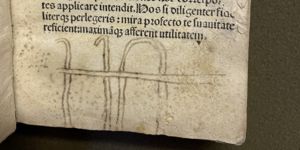 tes applicare intendit. Hos si diligenter
literꝙ perlegeris: mira profecto te suauitate
reficient: maximãꝙ afferent vtilitatem.